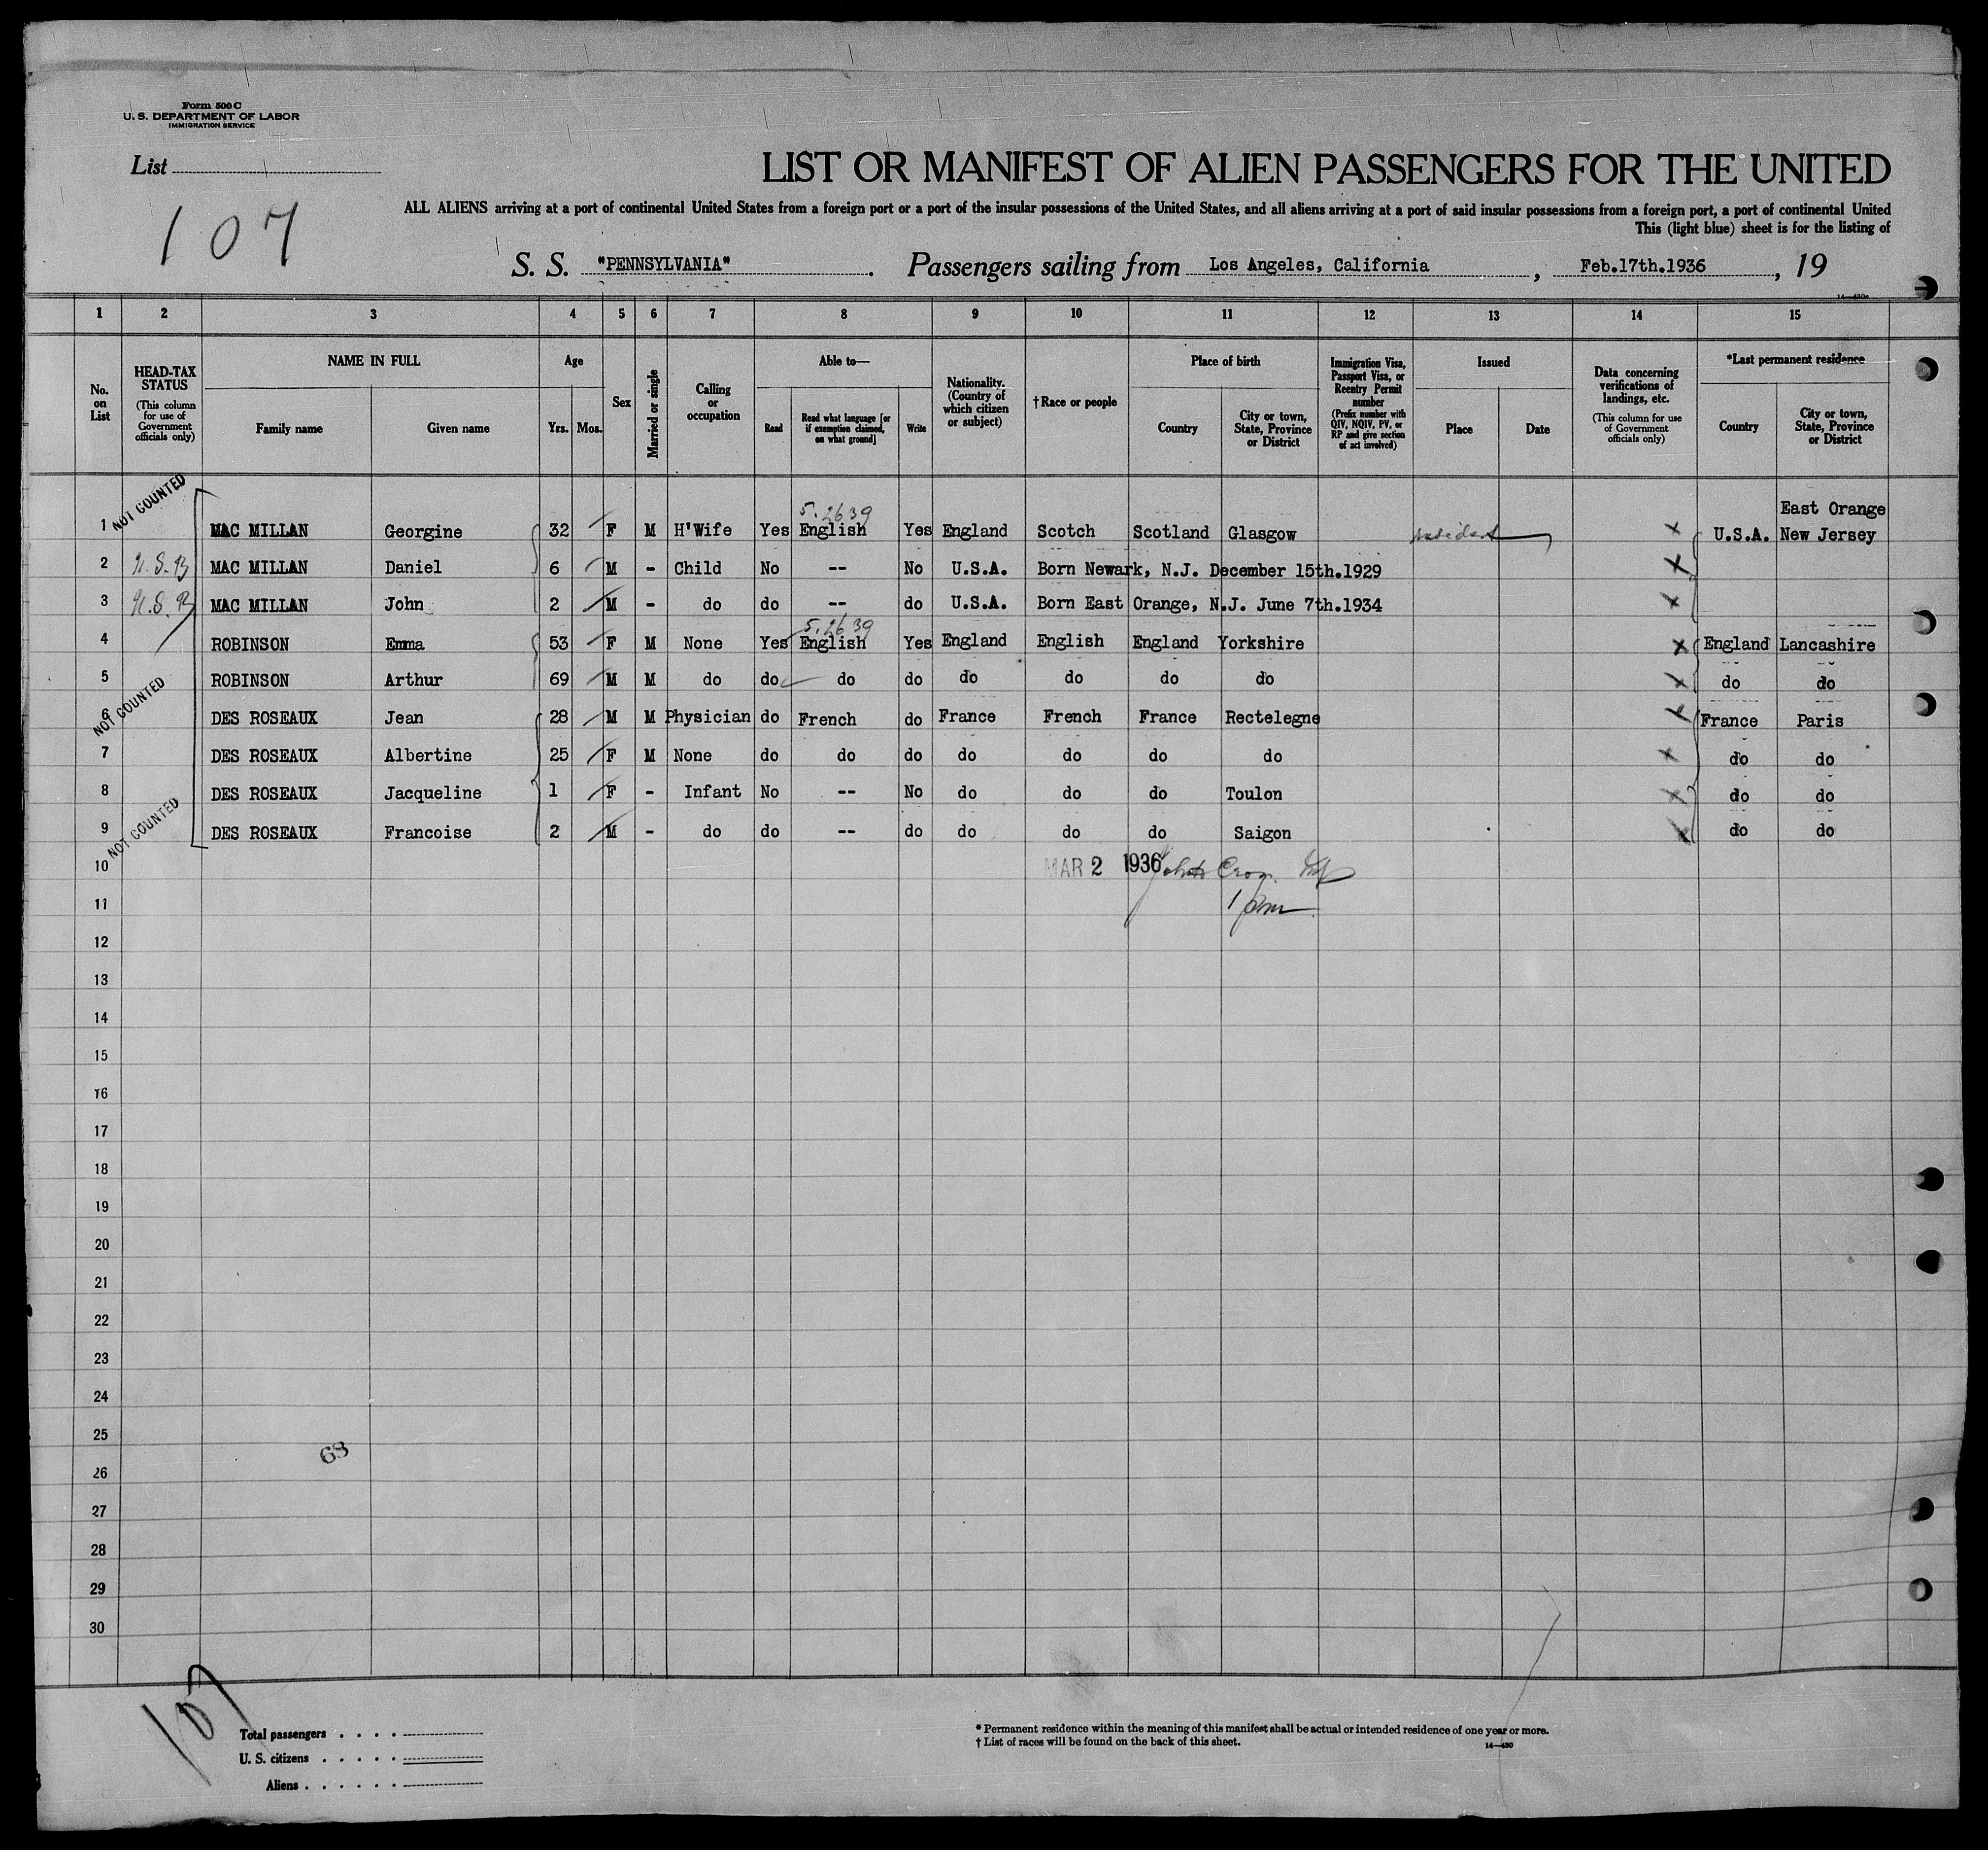 Form 500 C
U. S. DEPARTMENT OF LABOR
IMMIGRATION SERVICE
List
107
LIST OR MANIFEST OF ALIEN PASSENGERS FOR THE UNITED
ALL ALIENS arriving at a port of continental United States from a foreign port or a port of the insular possessions of the United States, and all aliens arriving at a port of said insular possessions from a foreign port, a port of continental United
This (light blue) sheet is for the listing of
S. S. "PENNSYLVANIA" . Passengers sailing from Los Angeles, California , Feb.17th.1936 , 19
1 2 3 4 5 6 7 8 9 10 11 12 13 14 15
No. on List
HEAD-TAX STATUS (This column for use of Government officials only)
NAME IN FULL
Family name Given name
Age
Yrs. Mos.
Sex
Married or single
Calling or occupation
Able to—
Read Read what language [or if exemption claimed, on what ground] Write
Nationality. (Country of which citizen or subject)
†Race or people
Place of birth
Country City or town, State, Province or District
Immigration Visa, Passport Visa, or Reentry Permit number (Prefix number with QIV, NQIV, PV, or RP and give section of act involved)
Issued
Place Date
Data concerning verifications of landings, etc. (This column for use of Government officials only)
*Last permanent residence
Country City or town, State, Province or District
NOT COUNTED
5.2639
East Orange
1 MAC MILLAN Georgine 32 F M H'Wife Yes English Yes England Scotch Scotland Glasgow x U.S.A. New Jersey
2 U.S.B MAC MILLAN Daniel 6 M - Child No -- No U.S.A. Born Newark, N.J. December 15th.1929 x
3 U.S.B MAC MILLAN John 2 M - do do -- do U.S.A. Born East Orange, N.J. June 7th.1934 x
5.2639
4 ROBINSON Emma 53 F M None Yes English Yes England English England Yorkshire x England Lancashire
5 ROBINSON Arthur 69 M M do do do do do do do do x do do
NOT COUNTED
6 DES ROSEAUX Jean 28 M M Physician do French do France French France Rectelegne x France Paris
7 DES ROSEAUX Albertine 25 F M None do do do do do do do x do do
8 DES ROSEAUX Jacqueline 1 F - Infant No -- No do do do Toulon x do do
NOT COUNTED
9 DES ROSEAUX Francoise 2 M - do do -- do do do do Saigon x do do
10 MAR 2 1936
11 1 pm
12
13
14
15
16
17
18
19
20
21
22
23
24
25
68
26
27
28
29
30
107
Total passengers . . . .
U. S. citizens . . . . .
Aliens . . . . . .
* Permanent residence within the meaning of this manifest shall be actual or intended residence of one year or more.
† List of races will be found on the back of this sheet.
14—430